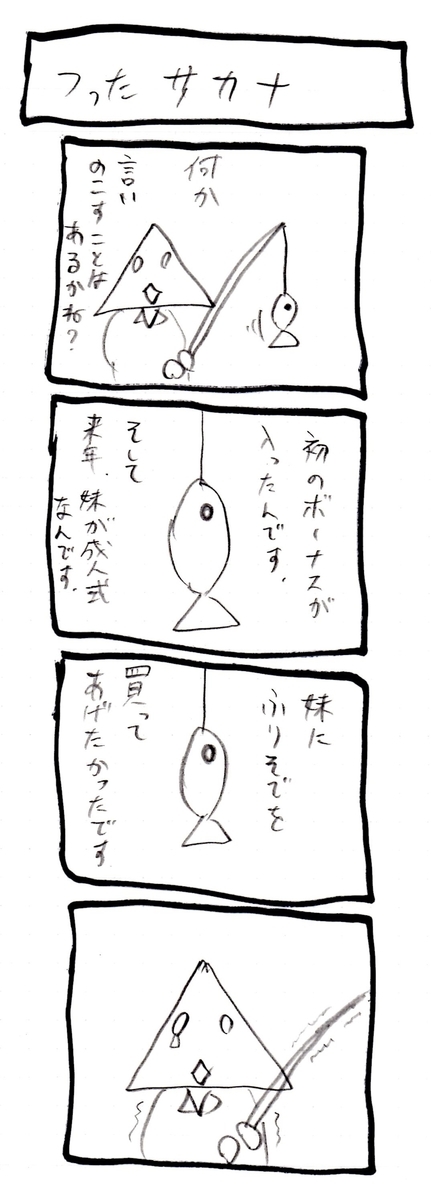 つった サカナ
何か
言い
のこすことは
あるかね?
初のボーナスが
入ったんです.
そして
来年、妹が成人式
なんです.
妹に
ふりそでを
買って
あげたかったです